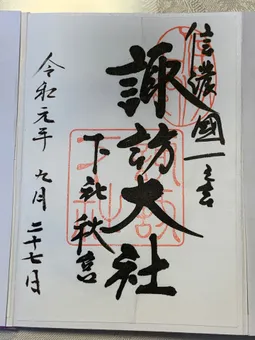 信濃國一之宮
諏訪大社
下社秋宮
令和元年 九月 二十七日